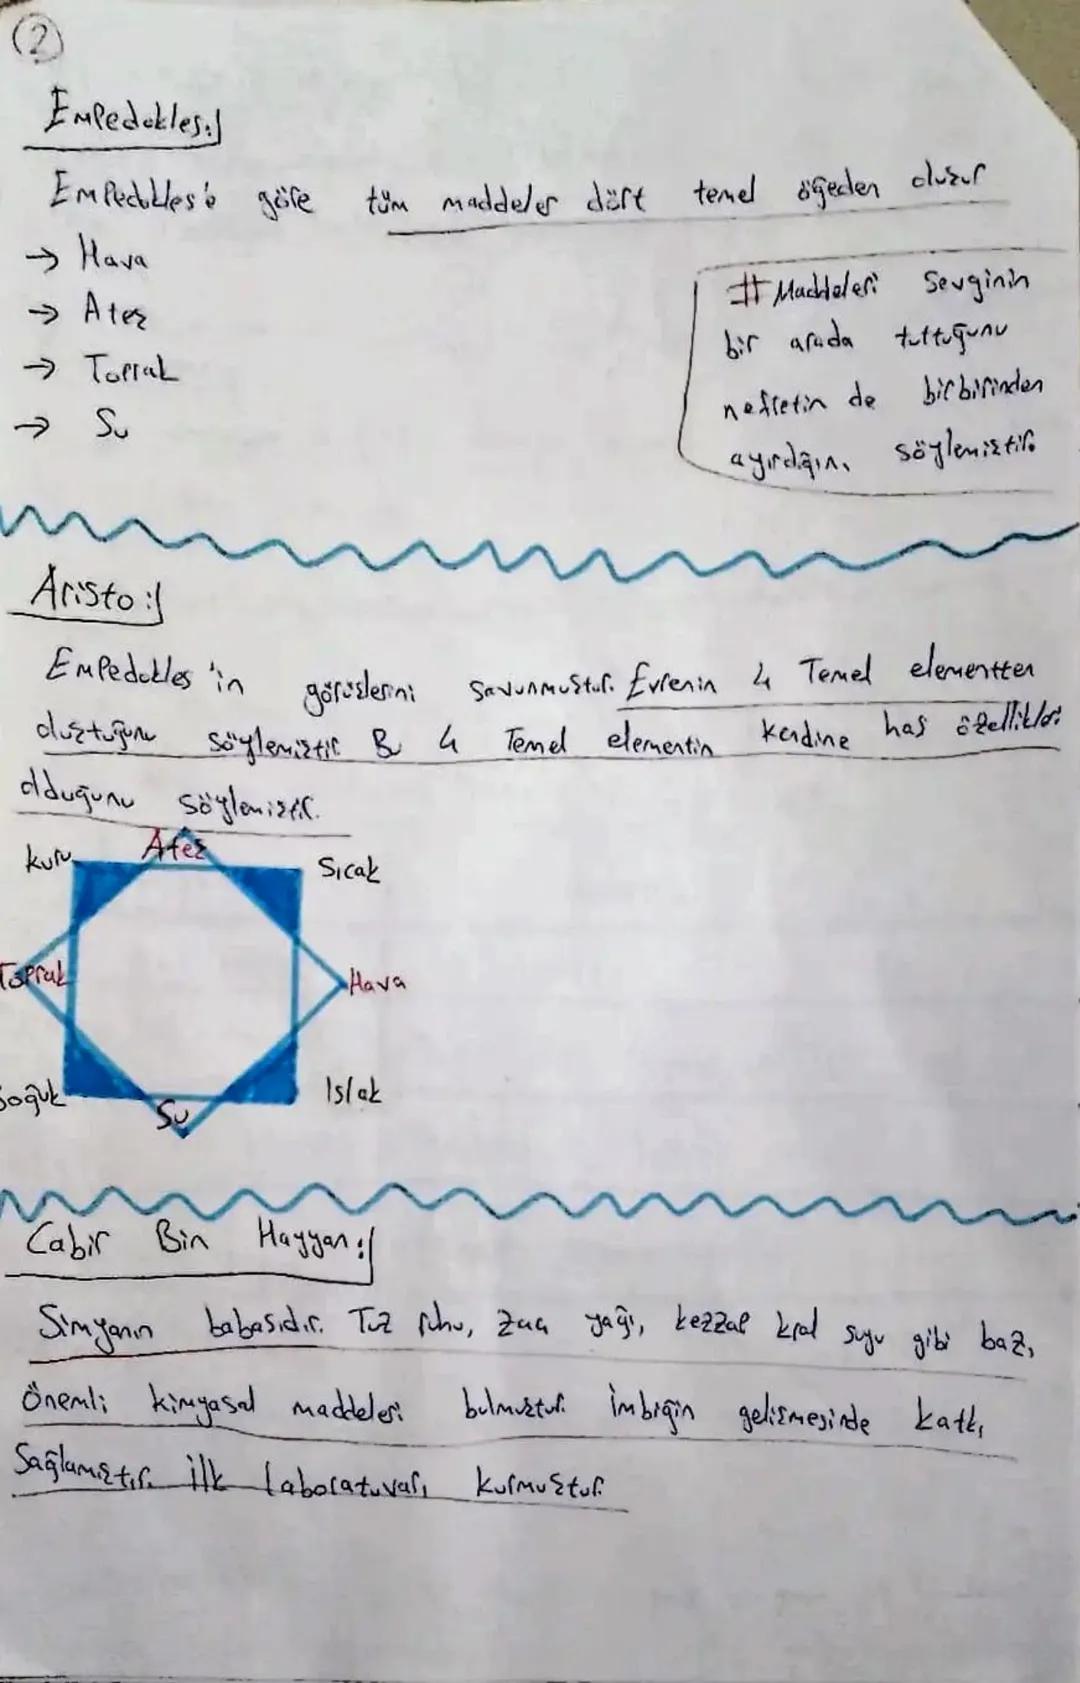 2
Empedokles:
Empedokles'e göre tüm maddeler dört temel öğeden oluşur
→ Hava
→ Ateş
→ Toprak
→ Su
# Maddeleri Sevginin
bir arada tuttuğunu
nefretin de birbirinden
ayırdığını söylemiştir.
Aristo:
Empedokles'in görüşlerini savunmuştur. Evrenin 4 Temel elementten
oluştuğunu söylemiştir Bu 4 Temel elementin kendine has özellikleri
olduğunu söylemiştir.
kuru Ateş Sıcak
Toprak Hava
Soğuk Su Islak
Cabir Bin Hayyan:
Simyanın babasıdır. Tuz ruhu, zaç yağı, kezzap kral suyu gibi bazı
Önemli kimyasal maddeleri bulmuştur. İmbiğin gelişmesinde katkı
Sağlamıştır. ilk laboratuvarı kurmuştur.